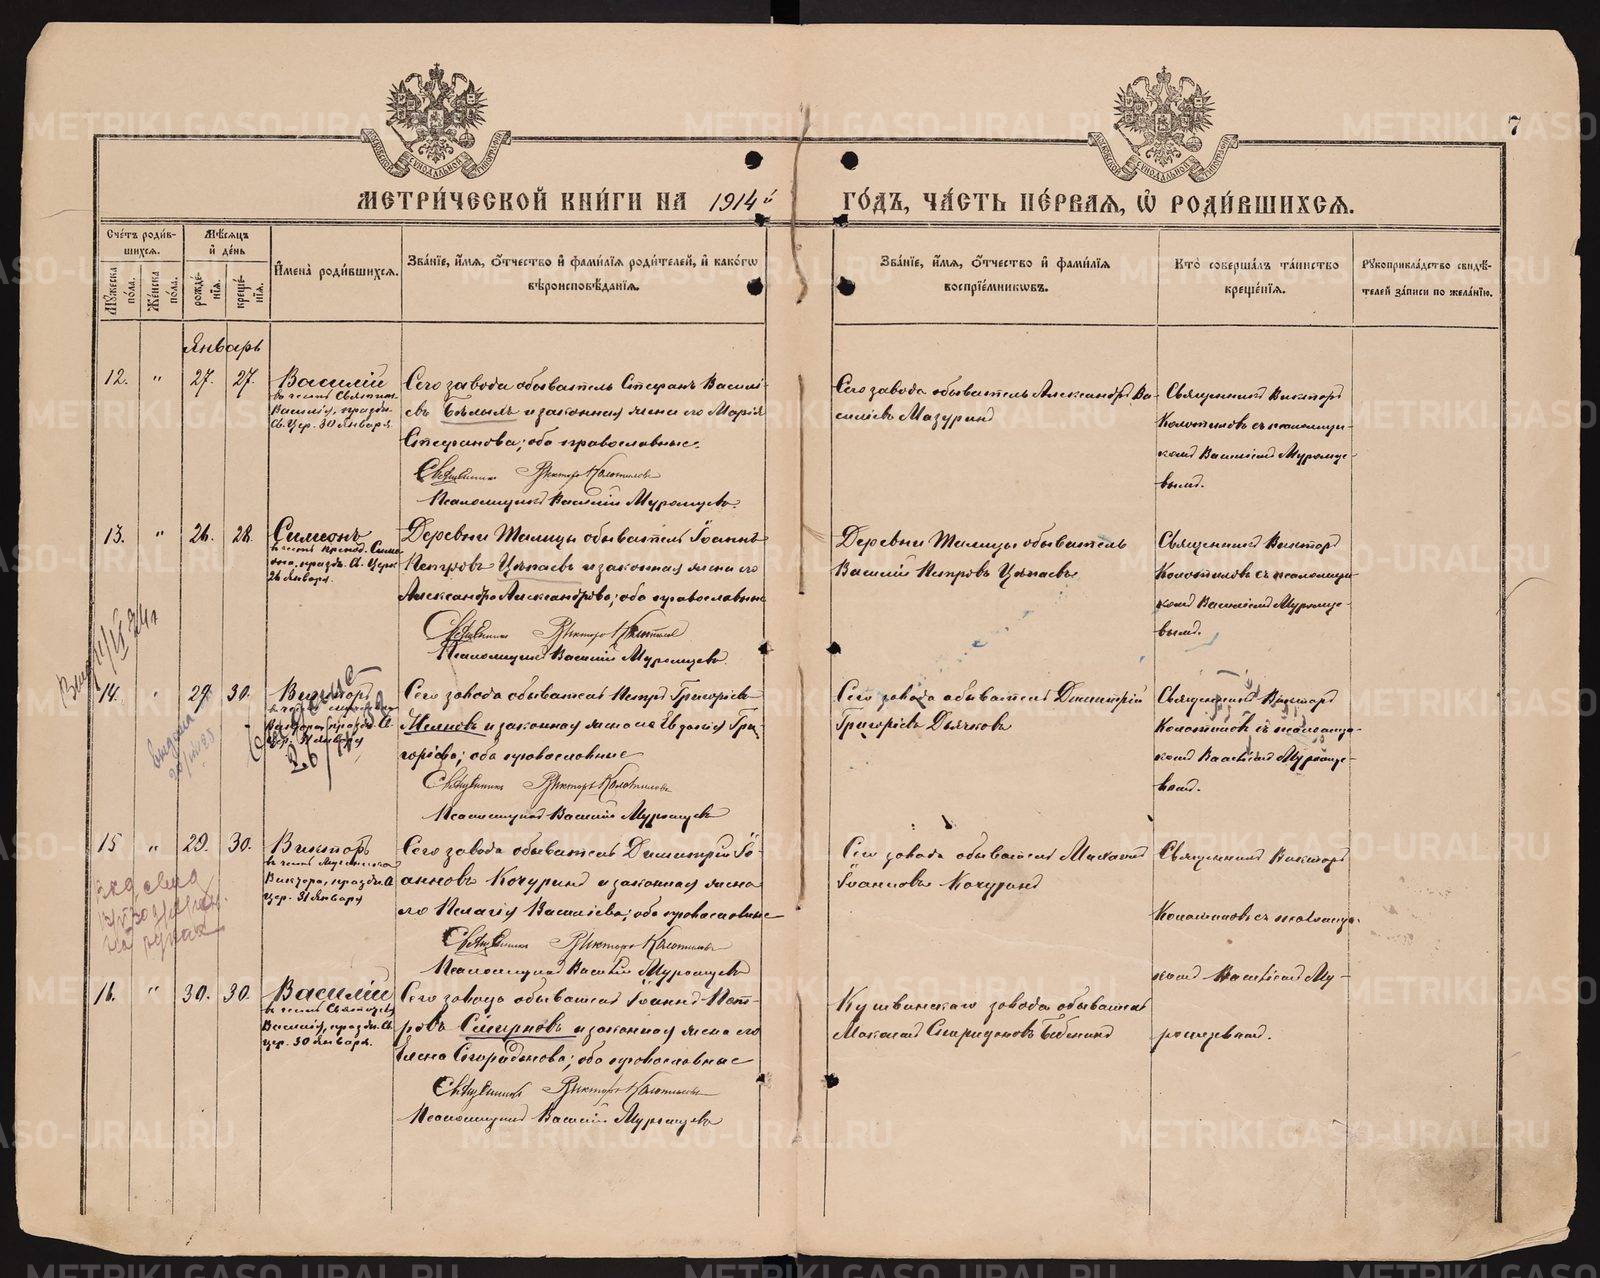 7
МЕТРИ́ЧЕСКОЙ КНИ́ГИ НА 1914й ГО́ДЪ, ЧА́СТЬ ПЕ́РВАЯ, Ѡ РОДИ́ВШИХСЯ.
Сче́тъ роди́в-
шихся.
Мꙋ́жеска по́ла.
Же́нска по́ла.
Мѣ́сяцъ
и҆ де́нь
рожде́-
нїя.
креще́-
нїя.
И҆мена̀ роди́вшихся.
Зва́нїе, и҆́мя, ѻ҆́тчество и҆ фами́лїя роди́телей, и҆ како́гѡ
вѣроисповѣ́данїя.
Зва́нїе, и҆́мя, ѻ҆́тчество и҆ фами́лїя
воспрїе́мникѡвъ.
Кто̀ соверша́лъ та́инство
креще́нїя.
Рꙋкоприкла́дство свидѣ́-
телей за́писи по жела́нїю.
Январь
12. " 27. 27. Василій
въ честь Святит.
Василія, праздн.
Св. Цер. 30 Января.
Сего завода обыватель Стефанъ Василі-
евъ Бѣлыхъ и законная жена его Марія
Стефанова; оба православные.
Священникъ Викторъ Колотиловъ
Псаломщикъ Василій Муромцевъ.
Сего завода обыватель Александръ Ва-
силіевъ Мазуринъ
Священникъ Викторъ
Колотиловъ съ псаломщи-
комъ Василіемъ Муромце-
вымъ.
13. " 26. 28. Симеонъ
въ честь препод. Симе-
она, праздн. Св. Церк.
26 Января.
Деревни Талицы обыватель Іоаннъ
Петровъ Цѣпаевъ и законная жена его
Александра Александрова; оба православные
Священникъ Викторъ Колотиловъ
Псаломщикъ Василій Муромцевъ.
Деревни Талицы обыватель
Василій Петровъ Цѣпаевъ
Священникъ Викторъ
Колотиловъ съ псаломщи-
комъ Василіемъ Муромце-
вымъ.
14. " 29. 30. Викторъ
Виктора, праздн. Св.
Цер. 31 Января
Сего завода обыватель Петръ Григоріевъ
и законная жена его Евдокія Гри-
горіева; оба православные
Священникъ Викторъ Колотиловъ
Псаломщикъ Василій Муромцевъ
Сего завода обыватель Димитрій
Григоріевъ Дьячковъ
Священникъ Викторъ
Колотиловъ съ псаломщи-
комъ Василіемъ Муромце-
вымъ.
15 " 29. 30. Викторъ
въ честь мученика
Виктора, праздн. Св.
Цер. 31 Января
Сего завода обыватель Димитрій Іо-
анновъ Кочуринъ и законная жена
его Пелагія Василіева; оба православные
Священникъ Викторъ Колотиловъ
Псаломщикъ Василій Муромцевъ
Сего завода обыватель
Іоанновъ Кочуринъ
Священникъ Викторъ
Колотиловъ съ псаломщи-
комъ Василіемъ Му-
ромцевымъ.
16. " 30. 30. Василій
въ честь Святителя
Василія, праздн. Св.
Цер. 30 Января.
Сего завода обыватель Іоаннъ Пет-
ровъ Смирновъ и законная жена его
Елена Спиридонова; оба православные
Священникъ Викторъ Колотиловъ
Псаломщикъ Василій Муромцевъ
Кушвинскаго завода обыватель
Спиридоновъ